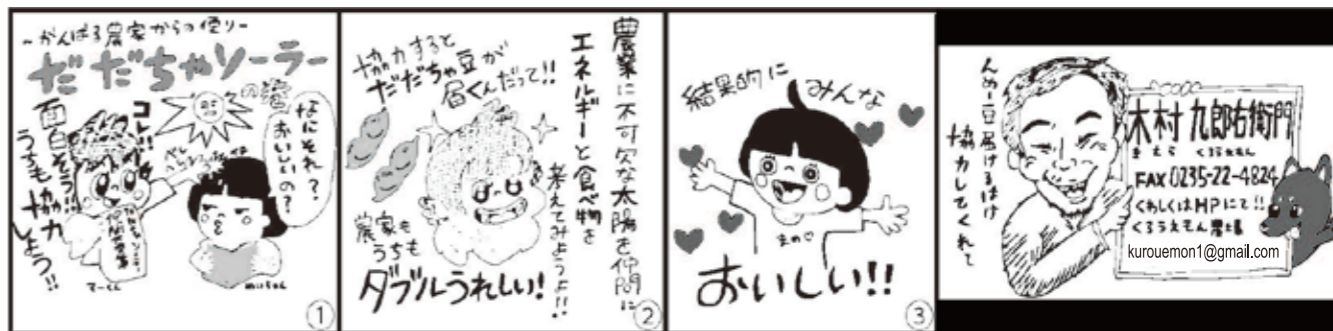 ～がんばる農家からの便り～
だだちゃソーラー
の巻
コレ!!
面白そう!!
うちも協力
しよう!!
なにそれ?
おいしいの?
まーくん
めいちゃん
①
協力すると
だだちゃ豆が
届くんだって!!
農家も
うちも
ダブルうれしい!
農業に不可欠な太陽を仲間に
エネルギーと食べ物を
考えてみようよ!!
②
結果的に
みんな
まめ♡
おいしい!!
③
んめー豆届けるはけ
協力してくれて
木村 九郎右衛門
きむら くろうえもん
FAX 0235-22-4824
くわしくはHPにて!!
くろうえもん農場
kurouemon1@gmail.com